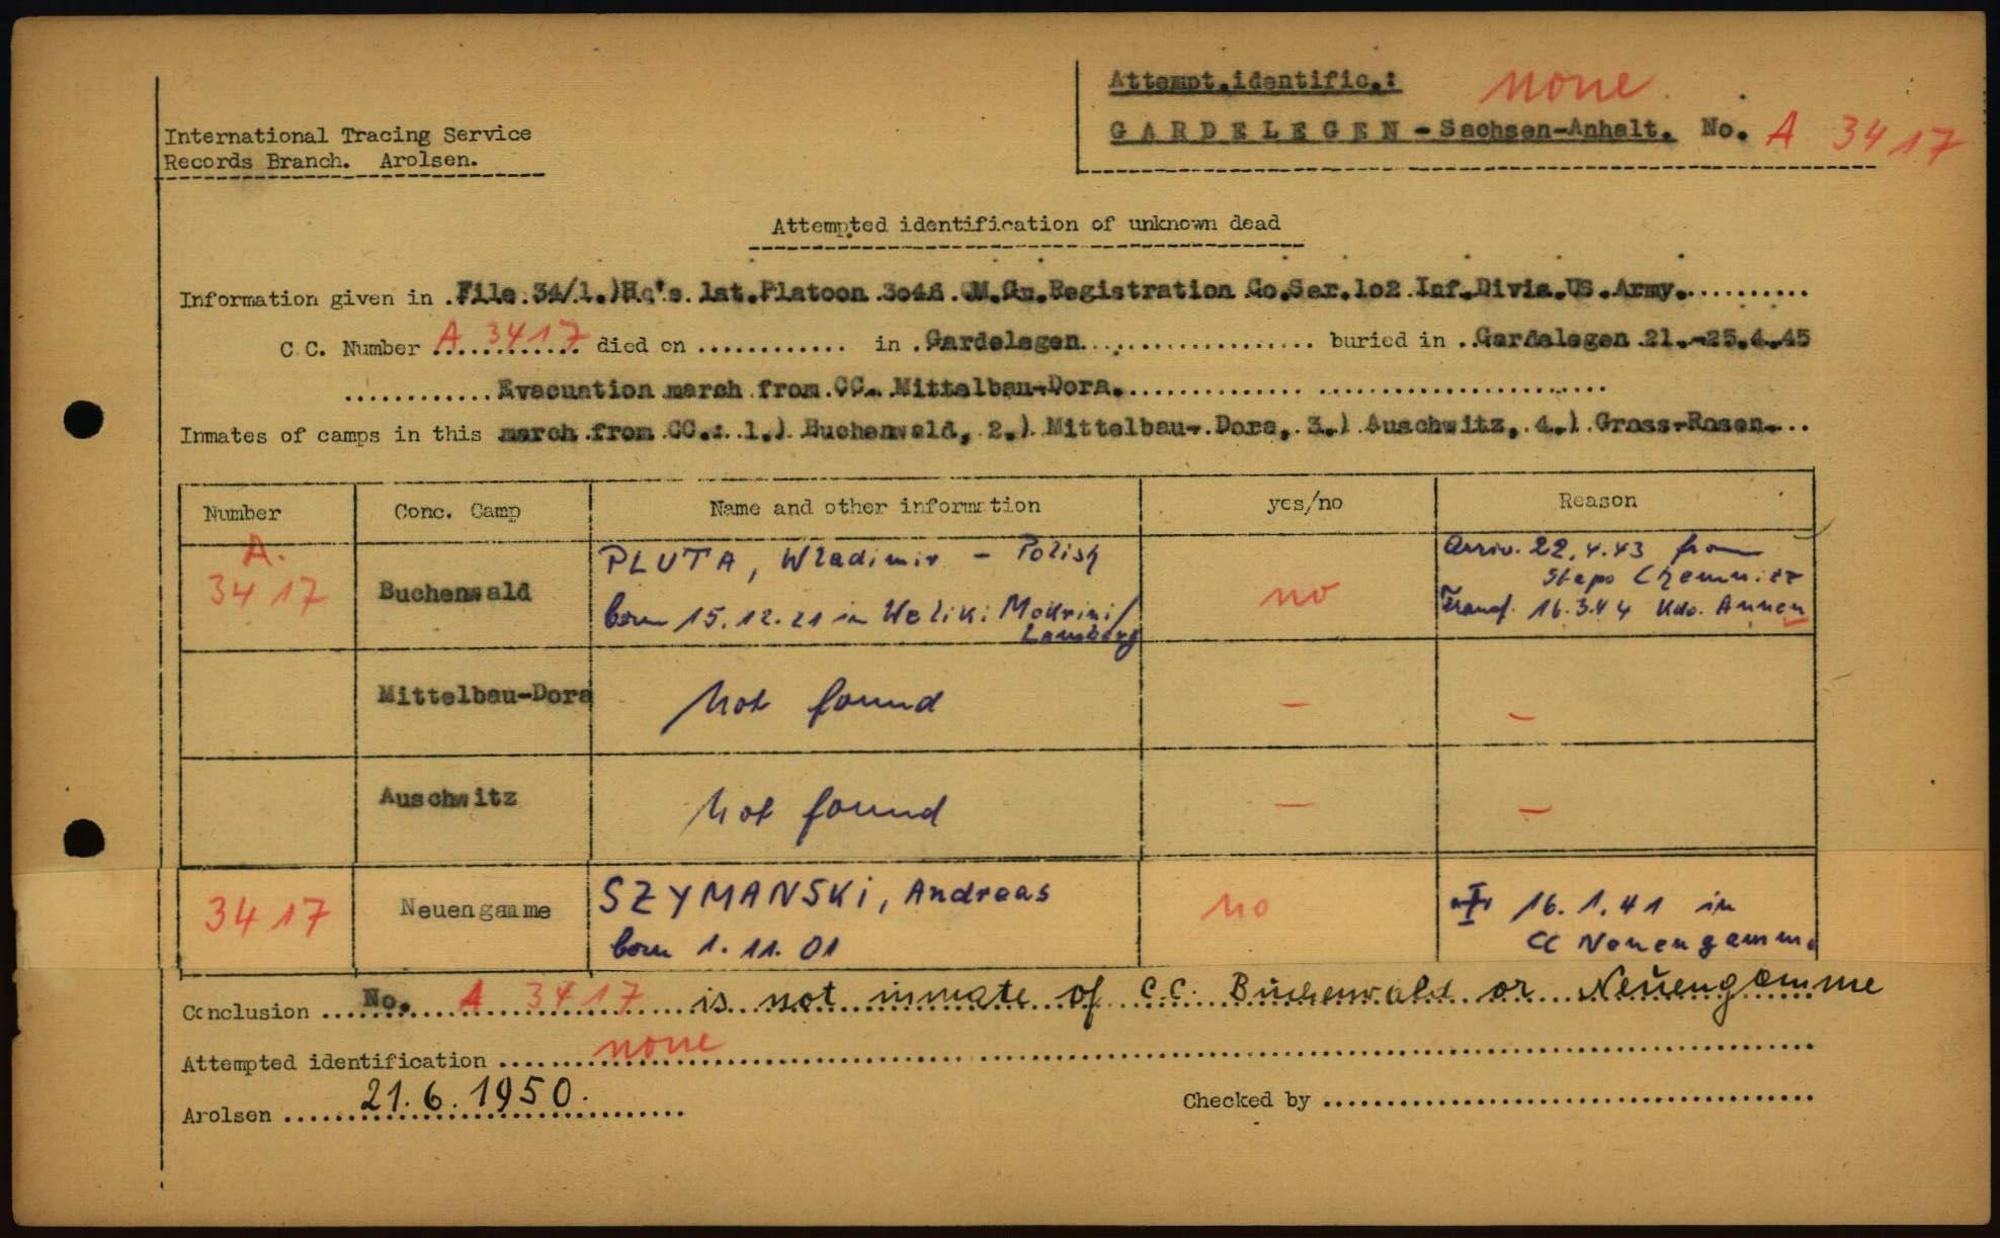 Attempt.identific.: none
International Tracing Service
GARDELEGEN - Sachsen-Anhalt. No. A 3417
Records Branch. Arolsen.
Attempted identification of unknown dead
Information given in .File.34/1.)Hq's. 1st.Platoon 3046. .Registration Co.Ser.1o2 Inf.Divis.US.Army...........
C.C. Number A 3417 died on ............ in .Gardelegen................... buried in ..Gardelegen 21.-25.4.45
............Evacuation march from CC. Mittelbau-Dora.......................................
Inmates of camps in this march from CC.: 1.) Buchenwald, 2.) Mittelbau-Dora, 3.) Auschwitz, 4.) Gross-Rosen...
Number Conc. Camp Name and other information yes/no Reason
A. 3417 Buchenwald PLUTA, Wladimir - Polish no Arriv. 22.4.43 from
Stapo Chemnitz
born 15.12.21 in Weliki Mokrini/ Transf. 16.3.44 Kdo. Annen
Lemberg
Mittelbau-Dora Not found - -
Auschwitz Not found - -
3417 Neuengamme SZYMANSKi, Andreas no 16.1.41 in
born 1.11.01 CC Neuengamme
Conclusion ....No. A 3417 is not inmate of C.C. Buchenwald or Neuengamme
Attempted identification ....... none
Arolsen ....... 21.6.1950. Checked by .......